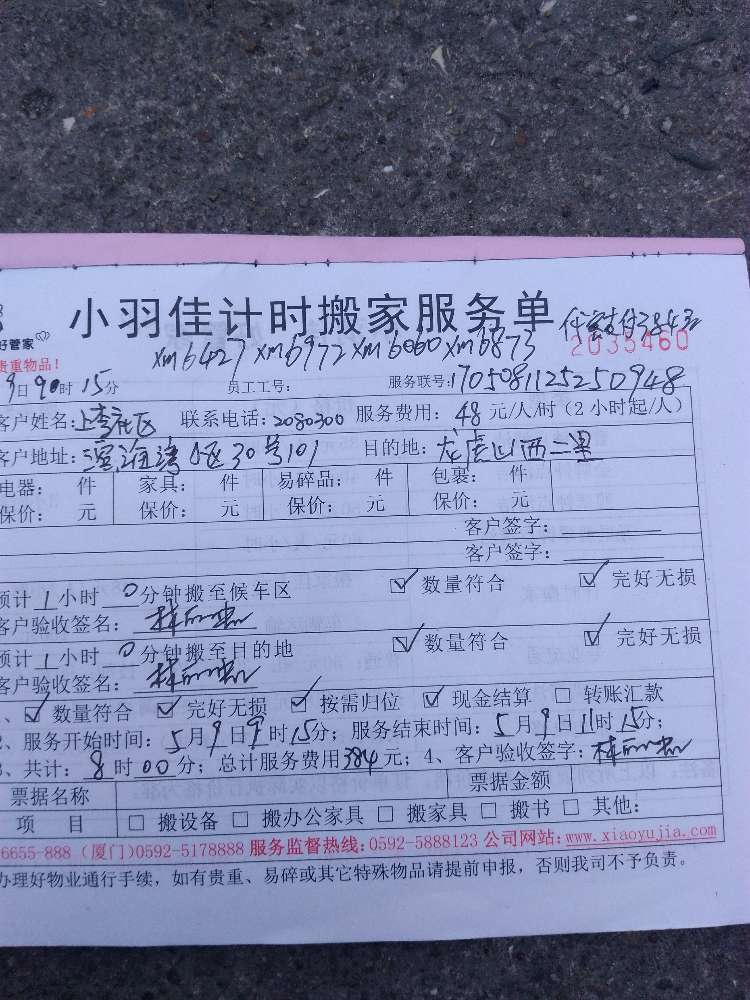 小羽佳计时搬家服务单
好管家
贵重物品!
xm6427 xm6972 xm6060 xm6873 2035460
9日 9时15分 员工工号: 服务联号:1705081125250948
客户姓名: 社区 联系电话:2080300 服务费用:48元/人/时(2小时起/人)
客户地址: 湾 30号101 目的地:龙虎山西二里
电器: 件 家具: 件 易碎品: 件 包裹: 件
保价: 元 保价: 元 保价: 元 保价: 元
客户签字:
客户签字:
预计1小时0分钟搬至候车区 ☑数量符合 ☑完好无损
客户验收签名:
预计1小时0分钟搬至目的地 ☑数量符合 ☑完好无损
客户验收签名:
、☑数量符合 ☑完好无损 ☑按需归位 ☑现金结算 □转账汇款
2、服务开始时间:5月9日9时15分;服务结束时间:5月9日11时15分;
3、共计:8时00分;总计服务费用384元;4、客户验收签字:
票据名称 票据金额
项 目 □搬设备 □搬办公家具 □搬家具 □搬书 □其他:
6655-888(厦门)0592-5178888 服务监督热线:0592-5888123 公司网站:www.xiaoyujia.com
办理好物业通行手续,如有贵重、易碎或其它特殊物品请提前申报,否则我司不予负责。